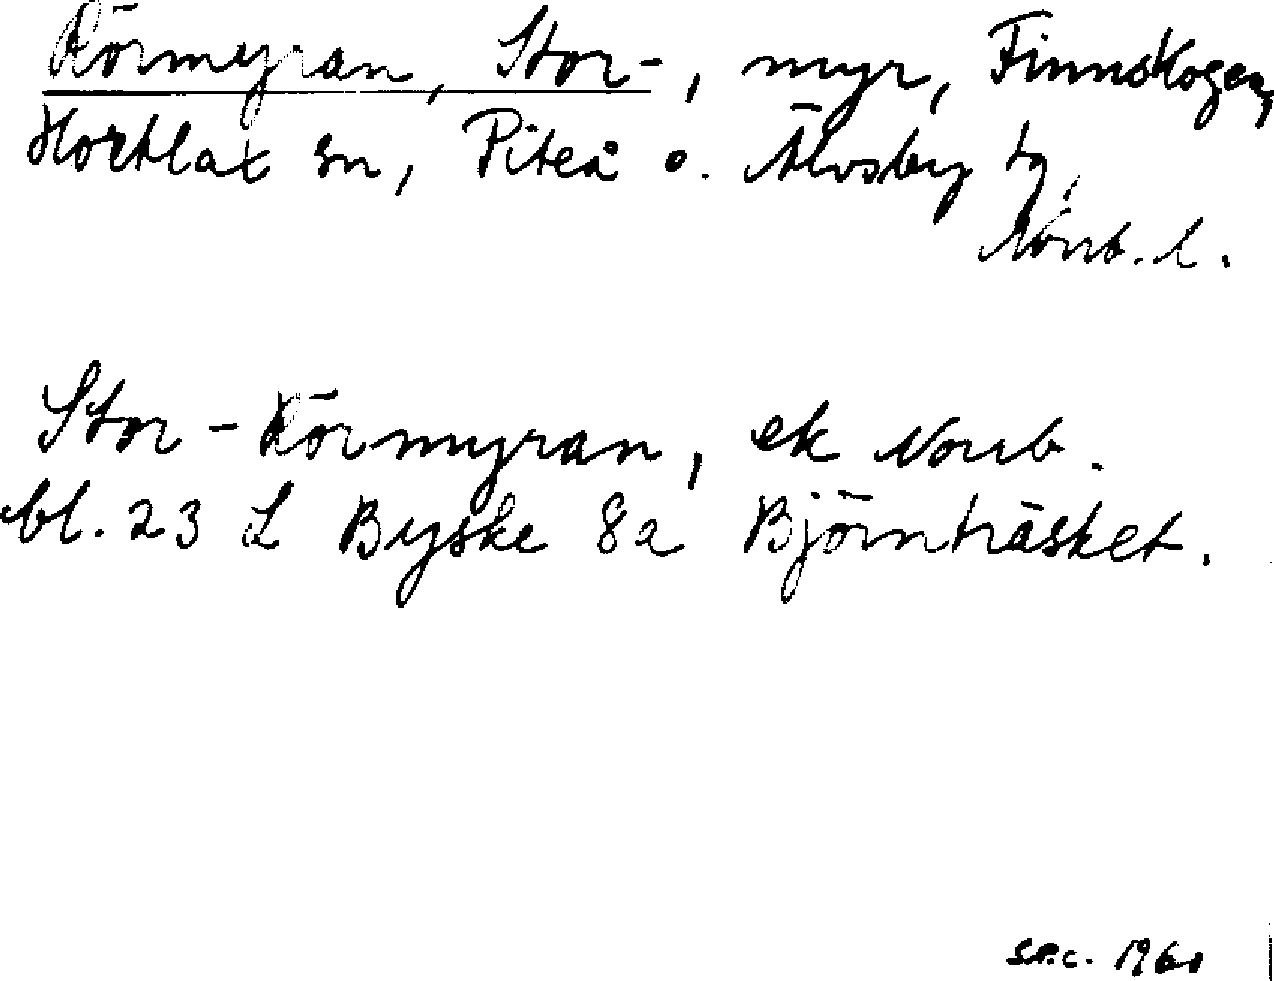 Rörmyran, Stor-, myr, Finnskogen,
Hortlax sn, Piteå o. Älvsby tg,
Norrb. l.
Stor-Rörmyran, ek Norrb.
bl. 23 L Byske 8a Björnträsket.
1961